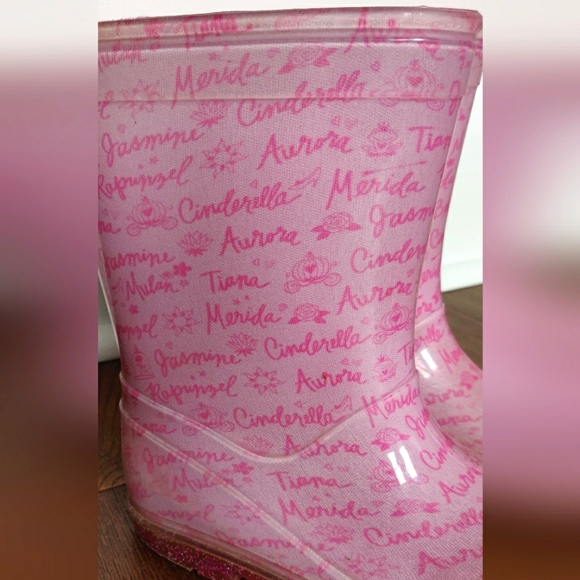 Merida
Jasmine Cinderella
Rapunzel Aurora Tiana
Cinderella Merida
Jasmine Aurora Jasm
Mulan Tiana Cinder
Merida Auror
Jasmine Cinderella
Rapunzel Aurora Tia
Cinderella Merida
Jasmine Aurora
Mulan Tiana
Merida Cinderella